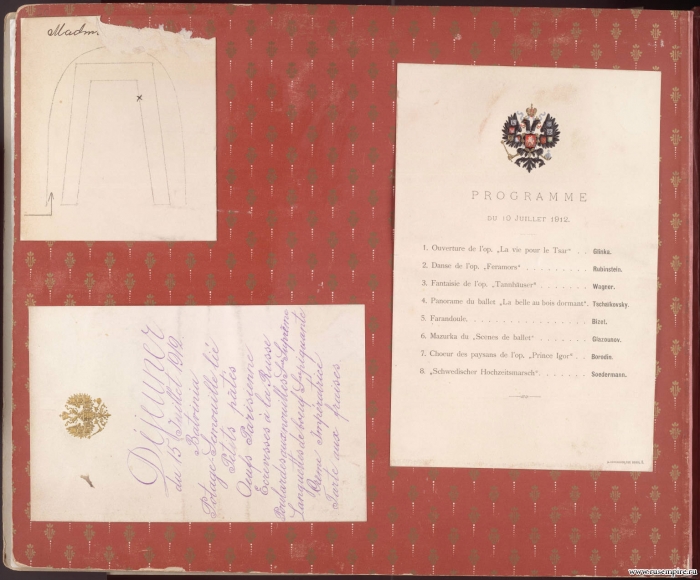 Madm
PROGRAMME
DU 19 JUILLET 1912.
1. Ouverture de l'op. „La vie pour le Tsar“ . . Glinka.
2. Danse de l'op. „Feramors“ . . . . . . . . . Rubinstein.
3. Fantaisie de l'op. „Tannhäuser“ . . . . . . Wagner.
4. Panorame du ballet „La belle au bois dormant“. Tschaikovsky.
5. Farandoule. . . . . . . . . . . . . . . . . Bizet.
6. Mazurka du „Scenes de ballet“ . . . . . . . Glazounov.
7. Choeur des paysans de l'op. „Prince Igor“ . . Borodin.
8. „Schwedischer Hochzeitsmarsch“ . . . . . . Soedermann.
Déjeuner
du 15 Juillet 1912.
Batvinia
Potage Semouille lié
Petits pâtés
Oeufs Parisienne
Ecrevisses à la Russe
Poulardes aux nouilles S. Suprême
Languettes de boeuf S. piquante
Crème Impératrice
Tarte aux fraises
www.rusempire.ru